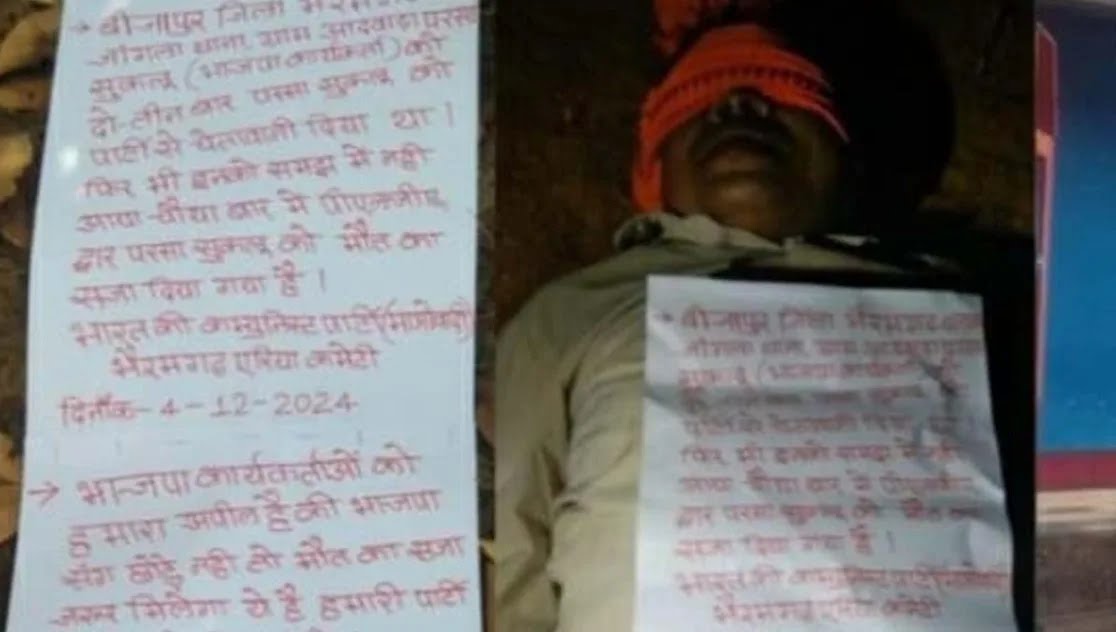 → बीजापुर जिला भैरमगढ़
जांगला थाना, ग्राम आदवाड़ा परसा
सुकलू (भाजपा कार्यकर्ता) की
दो-तीन बार परसा सुकलू को
पार्टी से चेतावनी दिया था।
फिर भी इनको समझ में नहीं
आया चौथा बार में पीएलजीए
द्वार परसा सुकलू को मौत का
सजा दिया गया है।
भारत की कम्युनिस्ट पार्टी (माओवादी)
भैरमगढ़ एरिया कमेटी
दिनांक- 4-12-2024
→ भाजपा कार्यकर्ताओं को
हमारा अपील है की भाजपा
संग छोड़े नही तो मौत का सजा
जरूर मिलेगा ये है हमारी पार्टी
→ बीजापुर जिला भैरमगढ़
जांगला थाना, ग्राम
सुकलू (भाजपा कार्यकर्ता) की
पार्टी से चेतावनी दिया था
फिर भी इनको समझ में नहीं
आया चौथा बार में पीएलजीए
द्वार परसा सुकलू को मौत का
सजा दिया गया है।
भारत की कम्युनिस्ट पार्टी
भैरमगढ़ एरिया कमेटी